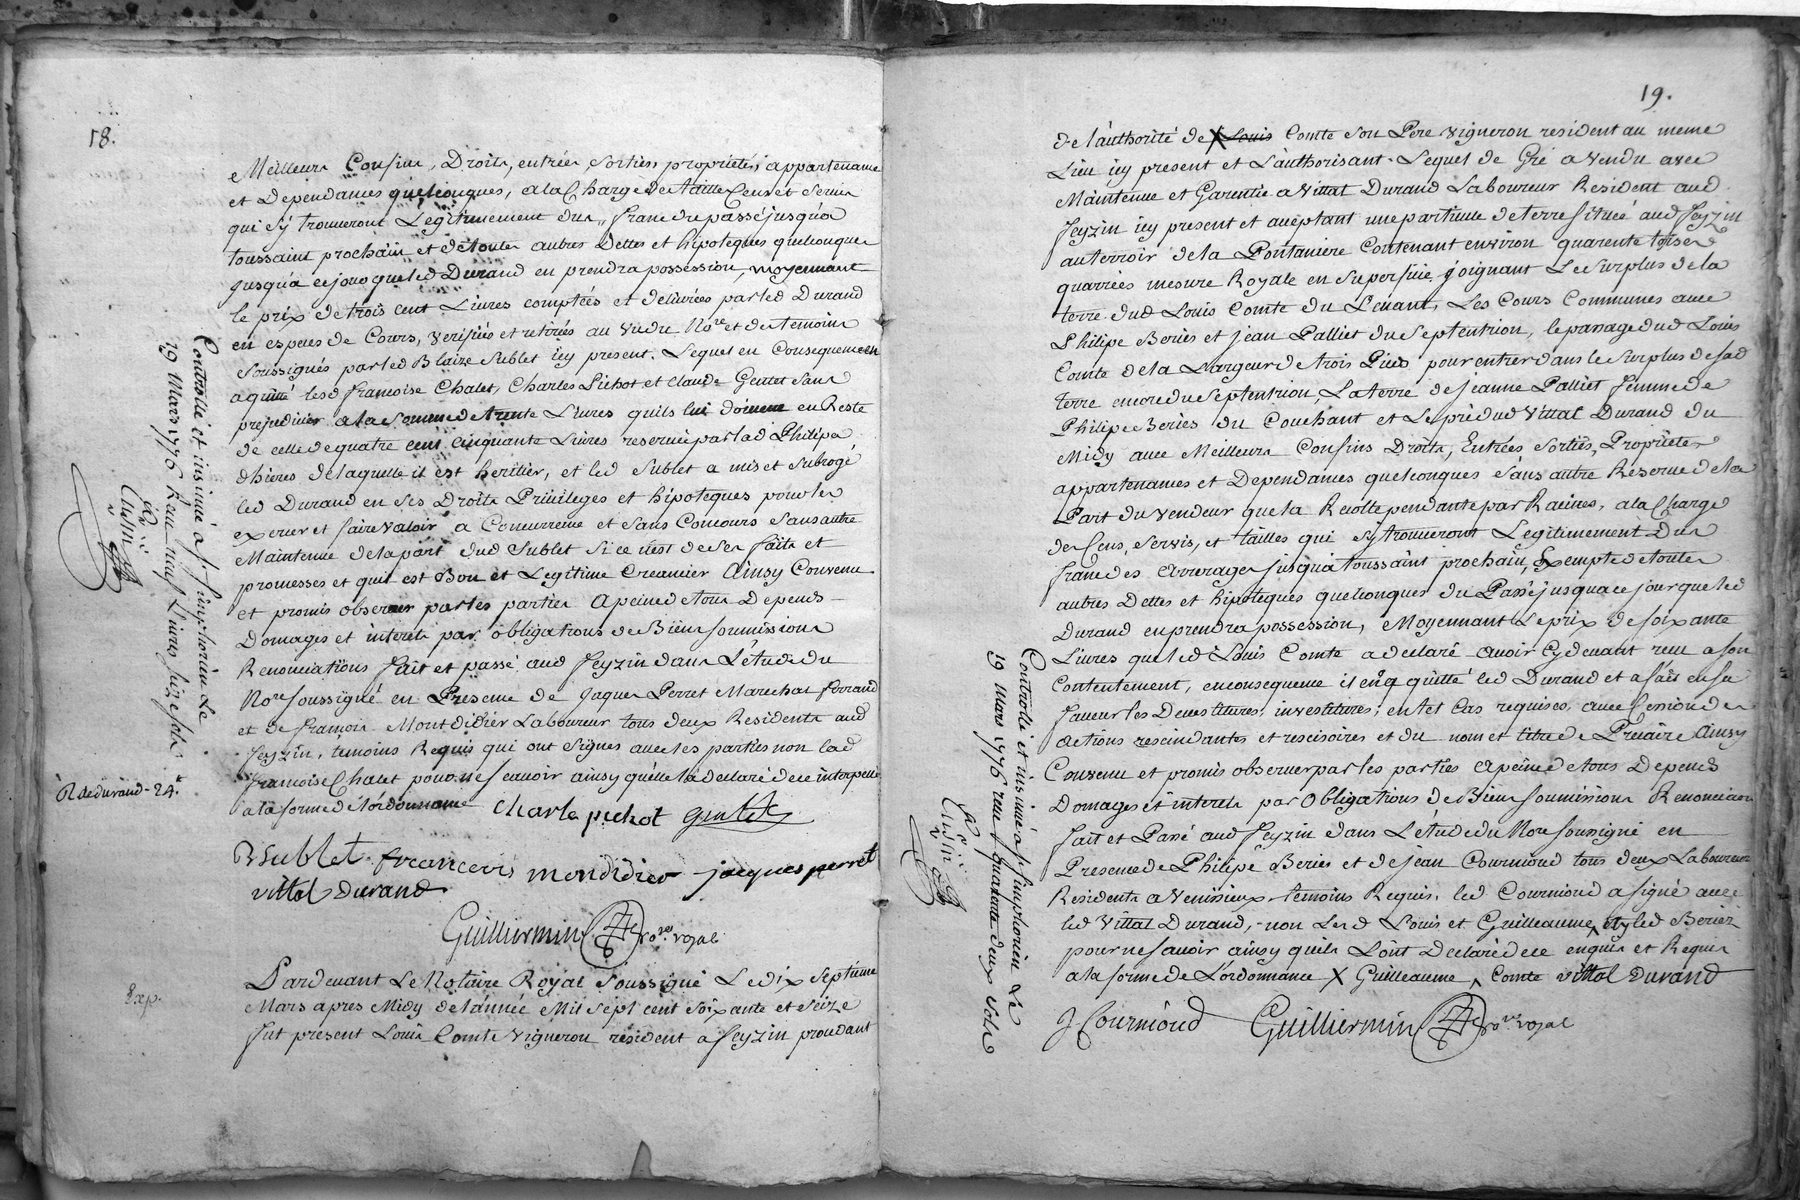 18.
Meilleurs Confins, Droits, entrées sorties, proprietés, appartenance
et dependances quelconques, a la Charge de taille Cens et Servis
qui s'y trouveront Legitimement dus, franc du passé jusqu'a
toussaint prochain et de toutes autres Dettes et hipoteques quelconques
jusqu'a ce jour que led Durand en prendra possession, moyennant
le prix de trois cent Livres comptées et delivrées par led Durand
en especes de Cours, verifiés et retirés au vu du Nore et des temoins
soussignés par led Blaize Sublet icy present. Lequel en Consequence en
a quitté lesd francoise Chalet, Charles Pichot et Claude Gentet sans
prejudicier a la somme de trente Livres quils lui doivent en Reste
de celle de quatre cent cinquante Livres reservée par lad Philipa
dhieres de laquelle il est heritier, et led Sublet a mis et subrogé
led Durand en ses Droits Privileges et hipoteques pour les
exercer et faire valoir a Concurrence et sans Concours sans autre
Maintenue de la part dud Sublet si ce n'est de ses faits et
promesses et quil est Bon et Legitime Creancier Ainsy Convenu
et promis observer par les parties a peine de tous Depends
Domages et interets par obligations de Biens soumissions
Renonciations fait et passé aud feyzin dans L'étude du
Nore soussigné en Presence de Jaques Perret Marechal ferrand
et de francois Montdidier Laboureur tous deux Residents aud
feyzin, temoins Requis qui ont signes avec les parties non lad
francoise Chalet pour ne scavoir ainsy qu'elle la declaré de ce interpellé
a la forme de l'ordonnance Charle pichot gentet
B Sublet francois mondidier jacques perret
vittal Durand
Guilliermin nore royal
Controllé et insinué a St simphorien Le
19 mars 1776 Recu neuf Livres seize sols
R de durand - 24s
Exp.
Pardevant Le Notaire Royal soussigné Le dix septieme
Mars apres Midy de l'année Mil sept cent soixante et seize
fut present Louis Comte vigneron resident a feyzin procedant
19.
de l'authorité de X Louis Comte son Pere vigneron resident au meme
Lieu icy present et L'authorisant. Lequel de Gré a vendu avec
Maintenue et Garentie a Vittal Durand Laboureur Resident aud
feyzin icy present et acceptant une particule de terre située aud feyzin
au terroir de la Fontaniere Contenant environ quarente toises
quarrées mesure Royale en superficie joignant Le surplus de la
terre dud Louis Comte du Levant, Les Cours Communes avec
Philipe Beries et Jean Palliet du Septentrion, le passage dud Louis
Comte de la Largeur de trois Pieds pour entrer dans le surplus de sad
terre encore du Septentrion, La terre de Jeanne Palliet femme de
Philipe Beries du Couchant et Le pré dud Vittal Durand du
Midy avec Meilleurs Confins Droits, Entrées Sorties, Proprietes
appartenances et Dependances quelconques sans autre Reserve de la
Part du vendeur que la Recolte pendante par Racines, a la Charge
des Cens, Servis, et tailles qui s'y trouveront Legitimement Dus
franc des arrerages jusqu'a toussaint prochain, Exempte de toutes
autres Dettes et hipoteques quelconques du Passé jusqua ce jour que led
Durand en prendra possession, Moyennant Le prix de soixante
Livres que led Louis Comte a declaré avoir cydevant recu a son
Contentement, en consequence il en a quitté led Durand et a fait en sa
faveur les Devestitures, investitures, en tel Cas requises, avec Cession des
actions rescindantes et rescisoires et du nom et titre de Precaire Ainsy
Convenu et promis observer par les parties a peine de tous Depends
Domages et interets par Obligations de Biens soumissions Renonciaons
fait et Passé aud feyzin dans L'étude du Nore soussigné en
Presence de Philipe Beries et de Jean Courmoud tous deux Laboureurs
Residents a Venissieux temoins Requis, led Courmoud a signé avec
led Vittal Durand, non Lesd Louis et Guilleaume ny led Beries
pour ne savoir ainsy quils L'ont Declaré de ce enquis et Requis
a la forme de L'ordonnance X Guilleaume Comte vittal Durand
J Courmoud Guilliermin nore royal
Controllé et insinué a St simphorien Le
19 mars 1776 recu quarente deux sols